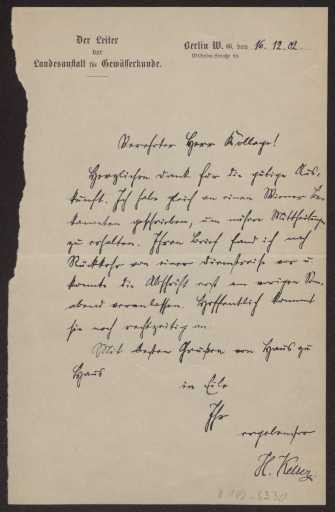 Der Leiter
der
Landesanstalt für Gewässerkunde.
Berlin W. 66, den 16.12.02
Wilhelm-Straße
Verehrter Herr Kollege!
Herzlichen Dank für die gütige Aus-
kunft. Ich habe gleich an einen Wiener Be-
kannten geschrieben, um nähere Mittheilungen
zu erhalten. Ihren Brief fand ich nach
Rückkehr von einer Dienstreise vor u.
konnte die Abschrift erst am vorigen Sonn-
abend veranlassen. Hoffentlich kommt
sie noch rechtzeitig an.
Mit besten Grüßen von Haus zu
Haus
in Eile
Ihr
ergebenster
H. Keller